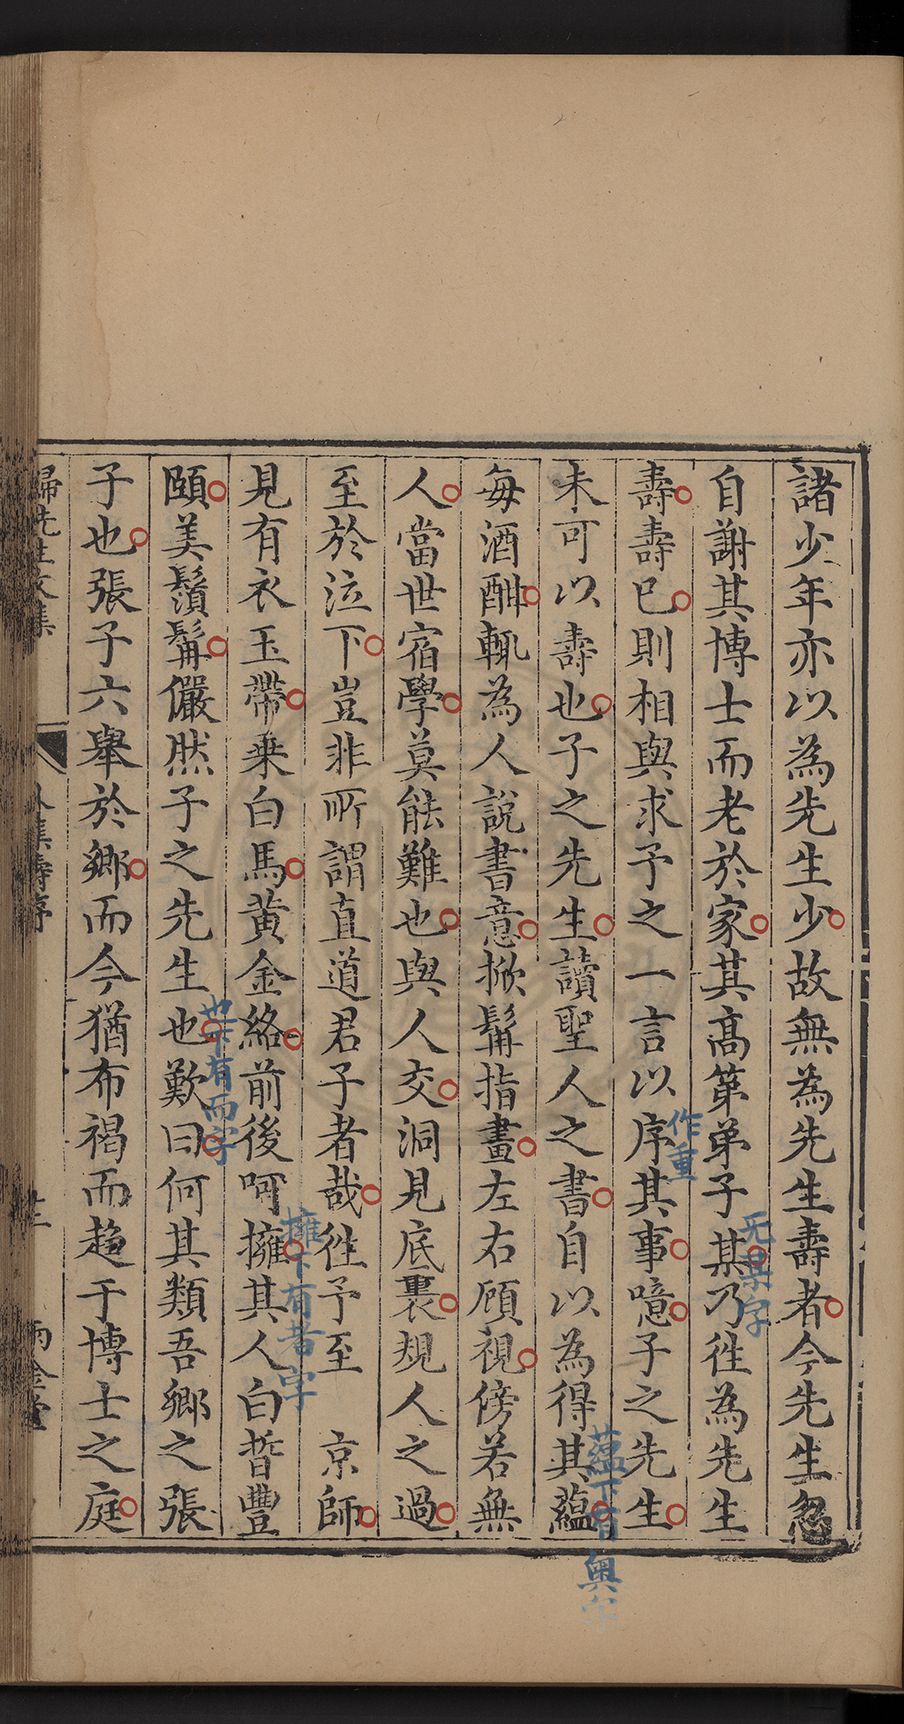 諸少年亦以為先生少故無為先生壽者今先生忽
自謝其博士而老於家其高第弟子某乃徃為先生
无某字
壽壽已則相與求予之一言以序其事噫子之先生
作重
未可以壽也子之先生讀聖人之書自以為得其蘊
蘊下有奥字
每酒酣輒為人說書意掀髯指畫左右顧視傍若無
人當世宿學莫能難也與人交洞見底裏規人之過
至於泣下豈非所謂直道君子者哉徃予至 京師
見有衣玉帶乗白馬黃金絡前後呵擁其人白晢豐
擁下有者字
頤美鬚髯儼然子之先生也歎曰何其類吾鄉之張
也下有而字
子也張子六舉於鄉而今猶布褐而趍于博士之庭
歸先生文集 外集壽序